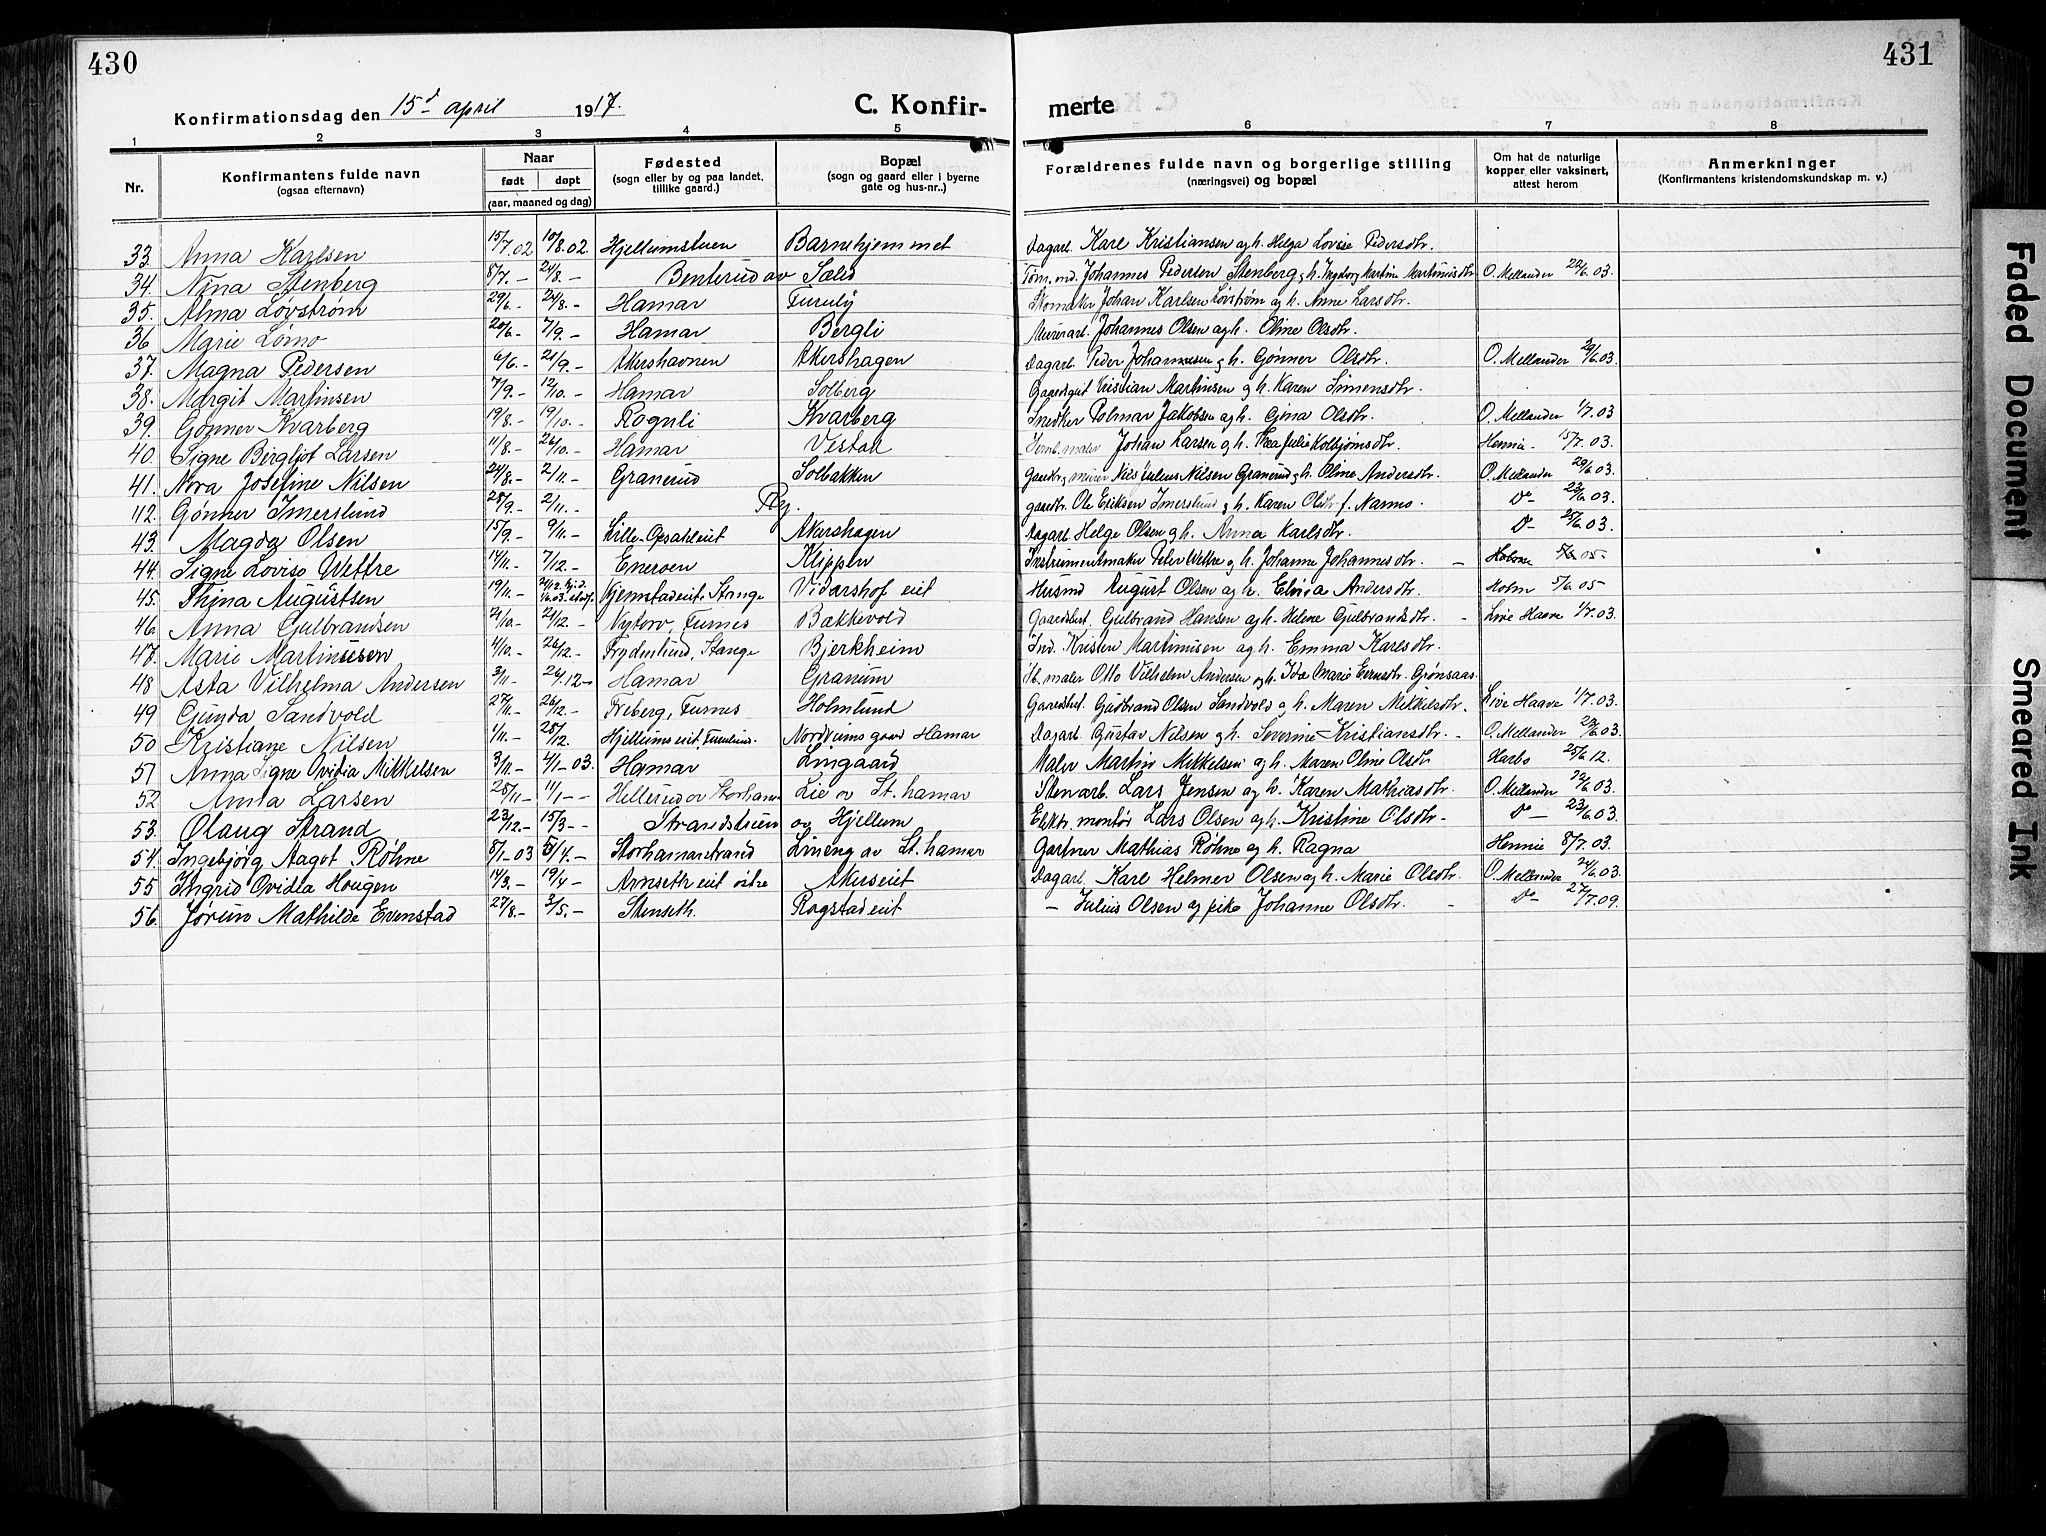 430
Konfirmationsdag den 15d april 1917.
C. Konfir-
1 2 3 4 5
Nr.
Konfirmantens fulde navn
(ogsaa efternavn)
Naar
født døpt
(aar, maaned og dag)
Fødested
(sogn eller by og paa landet,
tillike gaard.)
Bopæl
(sogn og gaard eller i byerne
gate og hus-nr..)
33. Anna Karlsen 15/7.02 10/8.02 Hjellumstuen Barnehjemmet
34. Nina Stenberg 8/7.- 24/8.- Benterud av Sælid
35. Alma Løvstrøm 29/6.- 24/8.- Hamar Furuly
36 Marie Lømo 20/6- 7/9.- Hamar Bergli
37. Magna Pedersen 6/6.- 21/9.- Akershavnen Akershagen
38. Margit Martinsen 7/9.- 12/10.- Hamar Solberg
39. Gønner Kvarberg 19/8.- 19/10.- Rognli Kvarberg
40. Signe Bergljot Larsen 11/8.- 26/10.- Hamar Vestad
41. Nora Josefine Nilsen 24/8.- 2/11.- Granerud Solbakken
42. Gønner Imerslund 28/9.- 2/11.-
43. Magda Olsen 15/9.- 9/11.- Lille-Opsahleiet Akershagen
44. Signe Lovise Wettre 14/11.- 7/12.- Eneroen Klippen
45. Thina Augustsen 19/11.- Kjemstadeiet, Stange Vidarshof eiet
46. Anna Gulbrandsen 2/10.- 21/12.- Nytorv, Furnes Bakkevold
47. Marie Martinussen 4/10.- 26/12.- Frydenlund, Stange Bjerkheim
48 Asta Vilhelma Andersen 3/11- 26/12- Hamar Granum
49 Gunda Sandvold 27/11.- 26/12.- Freberg, Furnes Holmlund
50 Kristiane Nilsen 1/11.- 28/12. Hjellums eiet, Nordviums gaard Hamar
51 Anna Signe Ovidia Mikkelsen 3/11.- 4/1-03. Hamar Lingaard
52 Anna Larsen 28/11- 11/1-- Hellerud ov Storhamar Lie ov St. hamar
53. Olaug Strand 23/12.- 15/3-- Strandstuen ov Hjellum
54. Ingebjörg Aagot Røhne 8/1-03 5/4.- Storhamarstrand Lineng av St. hamar
55 Ingrid Ovidia Hougen 14/3.- 19/4- Arnseth eiet östre Akerseiet
56. Jørun Mathilde Evenstad 27/8.- 3/5.- Stenseth. Rogstadeiet
431
merte
6 7 8
Forældrenes fulde navn og borgerlige stilling
(næringsvei) og bopæl
Om hat de naturlige
kopper eller vaksinert,
attest herom
Anmerkninger
(Konfirmantens kristendomskundskap m. v.)
Dagarb. Karl Kristiansen og h. Helga Lovise Pedersdtr.
Tøm.md. Johannes Pedersen Stenberg og h. Ingeborg Martine Martinusdtr. O. Mellander 20/6.03.
Skomaker Johan Karlsen Løvstrøm og h. Anne Larsdtr.
Meieriarb. Johannes Olsen og h. Oline Olsdtr.
Dagarb. Peder Johannesen og h. Gønner Olsdtr. O. Mellander 29/6.03.
Gaardsgut Kristian Martinsen og h. Karen Simensdtr.
Snedker Polmar Jakobsen og h. Gina Olsdtr. O. Mellander 1/7.03
Johan Larsen og h. Thea Julie Kolbjørnsdtr. Hennie 15/7.03.
Nils Julius Nilsen Granerud og h. Oline Andersdtr. O. Mellander 29/6.03.
gaardbr. Ole Eriksen Imerslund og h. Karen Olsdtr. f. Narmo. Do 23/6.03.
Dagarb. Helge Olsen og h. Anna Karlsdtr. Do 25/6.03.
Instrumentmaker Peter Wettre og h. Johanne Johannesdtr. - Holmen 5/6.05-
Husmd August Olsen og h. Elvia Andersdtr. Holm 5/6.05
Gaardsbest. Gulbrand Hansen og h. Helene Gulbrandsdtr. - Live Haave 1/7.03.
Ind. Kristen Martinusen og h. Emma Karlsdtr.
maler Otto Vilhelm Andersen og h. Ida Marie Evensdtr. Grønsaas.
Gaardsbest. Gudbrand Olsen Sandvold og h. Maren Mikkelsdtr. Live Haave 1/7.03.
Dagarb. Gustav Nilsen og h. Severine Kristiansdtr. - O. Mellander 23/6.03.
Maler Martin Mikkelsen og h. Maren Oline Olsdtr Harbo 25/6.12.
Stenarb. Lars Jensen og h. Karen Mathiasdtr. O. Mellander 22/6.03.
Elektr. montør Lars Olsen og h. Kristine Olsdtr- Do - 23/6.03.
Gartner Mathias Røhne og h. Ragna Hennie 8/7.03.
Dagarb. Karl Helmer Olsen og h. Marie Olsdtr. O. Mellander 24/6.03.
- Julius Olsen og pike Johanne Olsdtr. - Do 27/7.09.
Faded Document
Smeared Ink